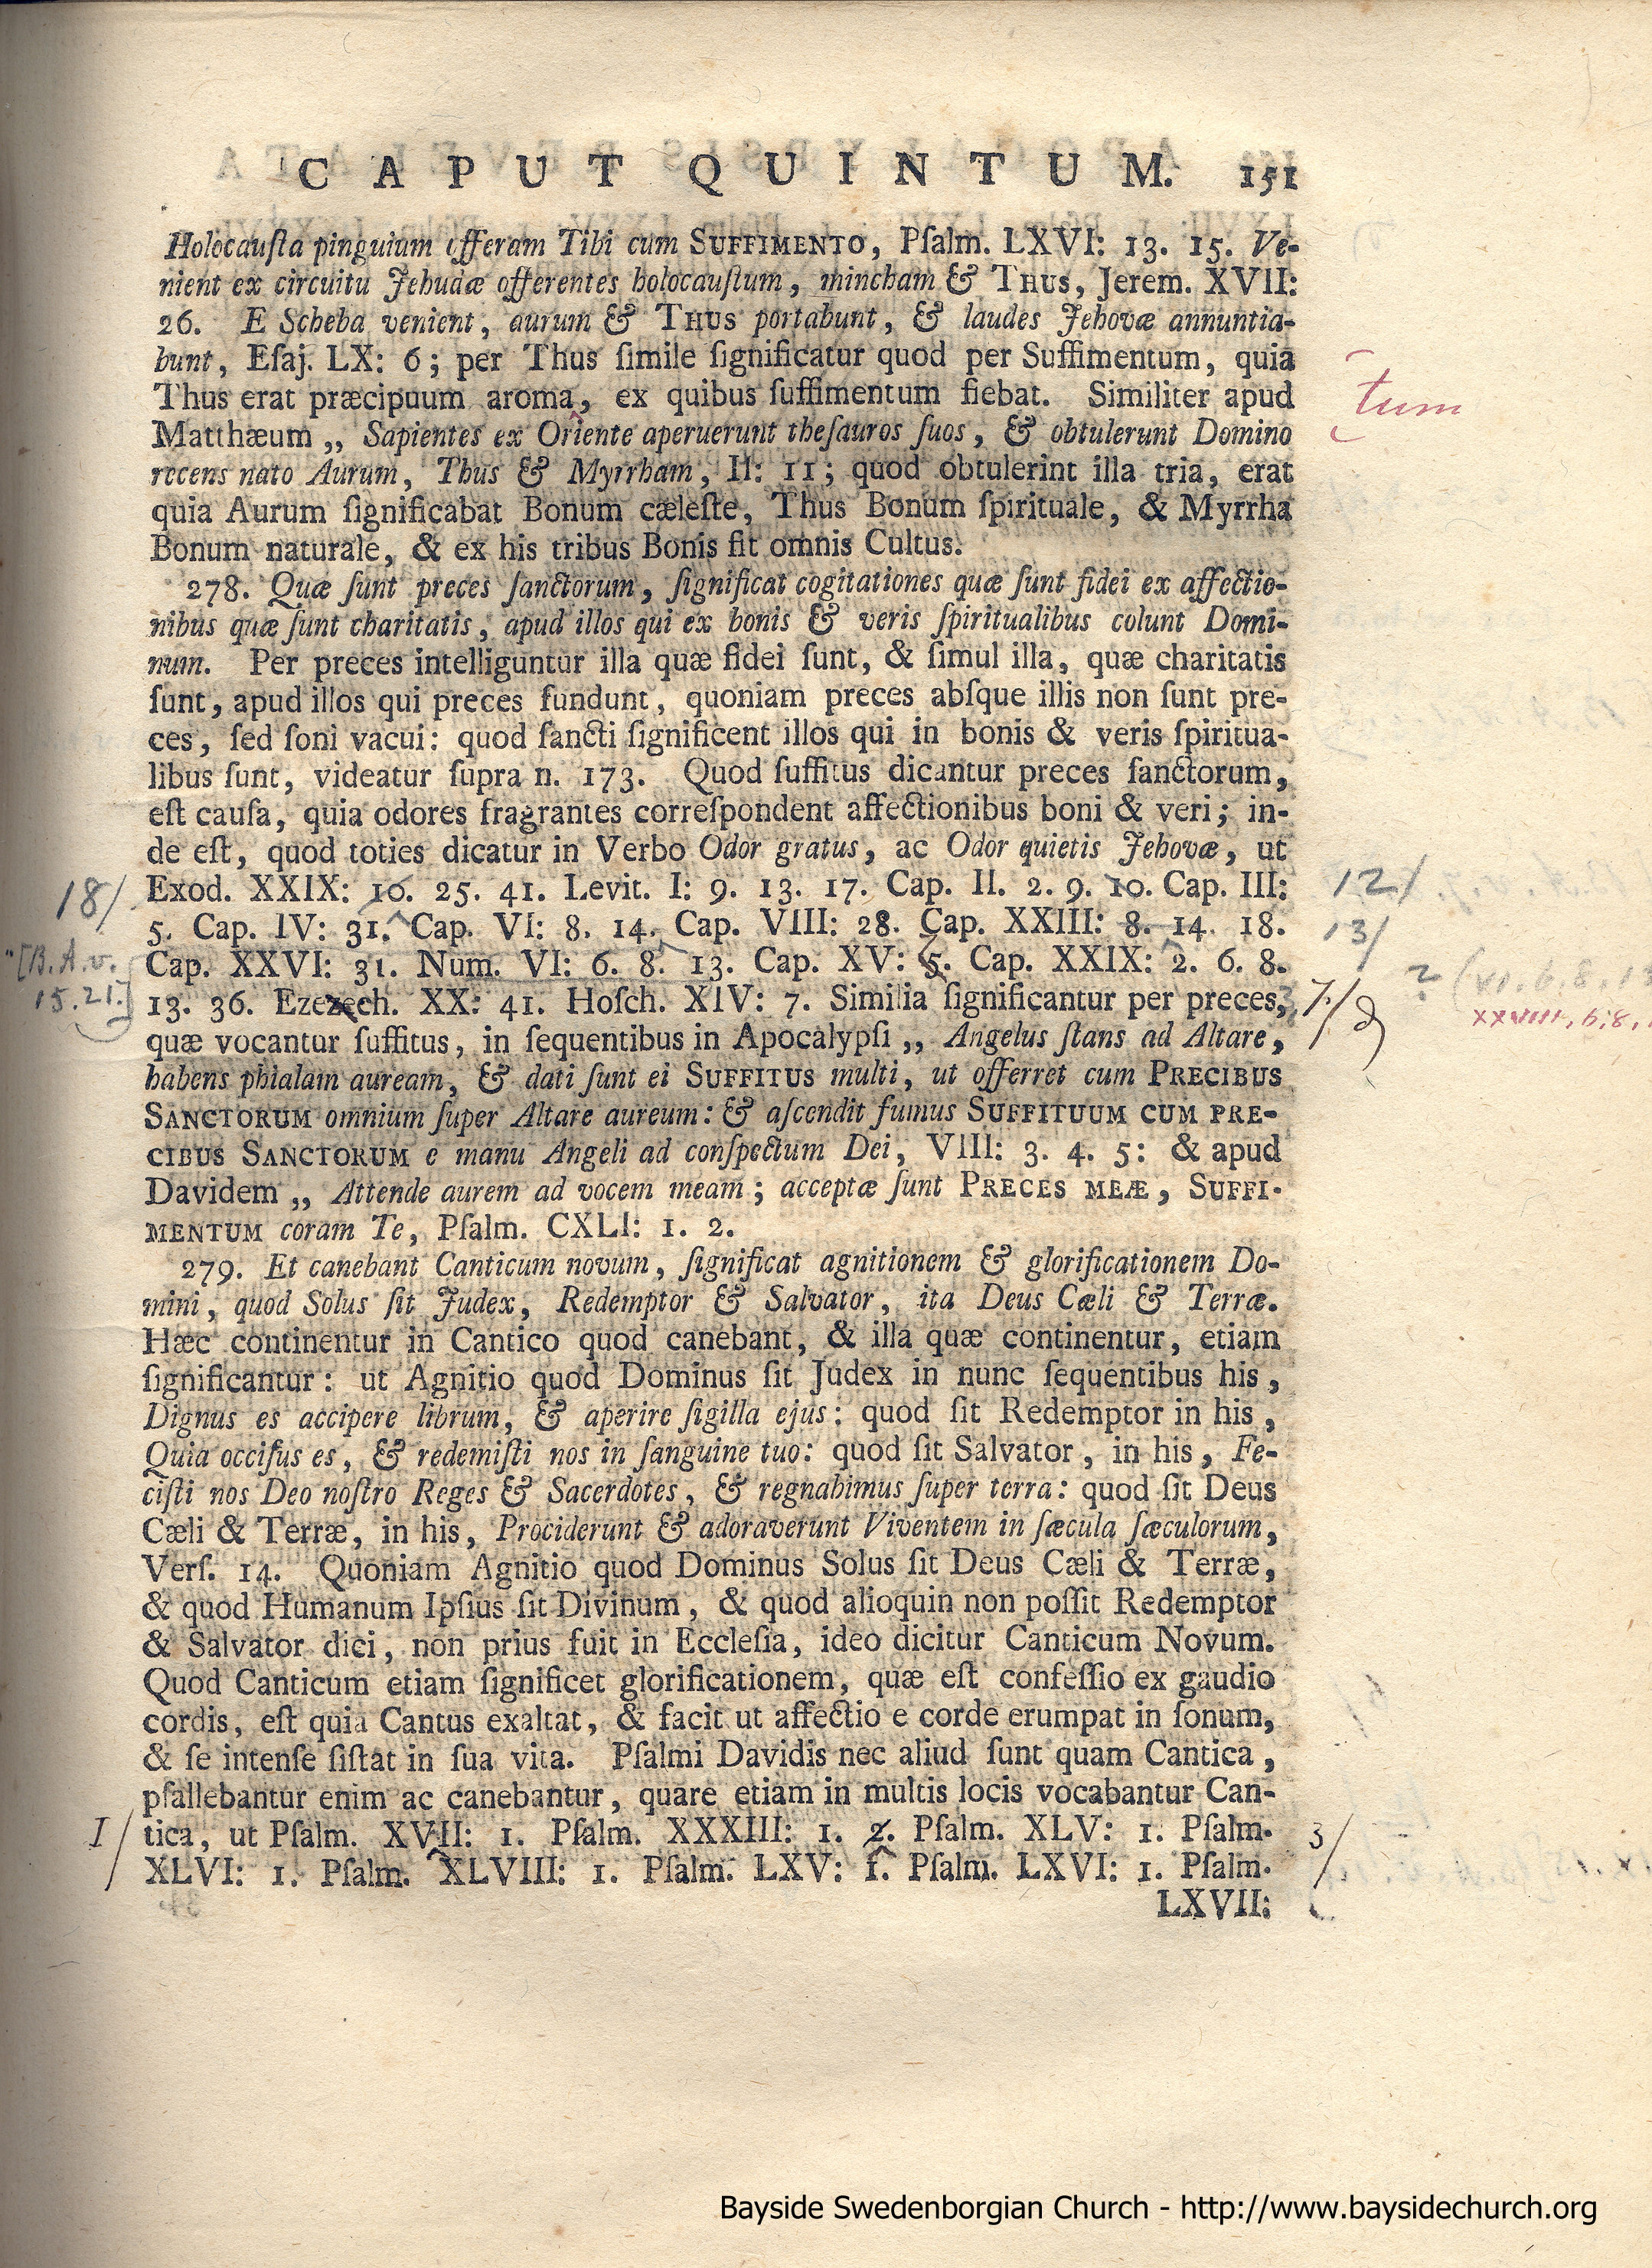 CAPUT QUINTUM. 151
Holocauſta pinguium offeram Tibi cum SUFFIMENTO, Pſalm. LXVI: 13. 15. Ve-
nient ex circuitu Jehudæ offerentes holocauſtum, mincham & THUS, Jerem. XVII:
26. E Scheba venient, aurum & THUS portabunt, & laudes Jehovæ annuntia-
bunt, Eſaj. LX: 6; per Thus ſimile ſignificatur quod per Suffimentum, quia
Thus erat præcipuum aroma, ex quibus ſuffimentum fiebat. Similiter apud
tum
Matthæum „ Sapientes ex Oriente aperuerunt theſauros ſuos, & obtulerunt Domino
recens nato Aurum, Thus & Myrrham, II: 11; quod obtulerint illa tria, erat
quia Aurum ſignificabat Bonum cæleſte, Thus Bonum ſpirituale, & Myrrha
Bonum naturale, & ex his tribus Bonis fit omnis Cultus.
278. Quæ ſunt preces ſanctorum, ſignificat cogitationes quæ ſunt fidei ex affectio-
nibus quæ ſunt charitatis, apud illos qui ex bonis & veris ſpiritualibus colunt Domi-
num. Per preces intelliguntur illa quæ fidei ſunt, & ſimul illa, quæ charitatis
ſunt, apud illos qui preces fundunt, quoniam preces abſque illis non ſunt pre-
ces, ſed ſoni vacui: quod ſancti ſignificent illos qui in bonis & veris ſpiritua-
libus ſunt, videatur ſupra n. 173. Quod ſuffitus dicantur preces ſanctorum,
eſt cauſa, quia odores fragrantes correſpondent affectionibus boni & veri; in-
de eſt, quod toties dicatur in Verbo Odor gratus, ac Odor quietis Jehovæ, ut
18/ Exod. XXIX: 10. 25. 41. Levit. I: 9. 13. 17. Cap. II. 2. 9. 10. Cap. III: 12/
5. Cap. IV: 31. Cap. VI: 8. 14. Cap. VIII: 28. Cap. XXIII: 8. 14. 18. 13/
"[B.A.v. Cap. XXVI: 31. Num. VI: 6. 8. 13. Cap. XV: 5. Cap. XXIX: 2. 6. 8. ? (VI. 6. 8. 13
15.21.] 13. 36. Ezezech. XX: 41. Hoſch. XIV: 7. Similia ſignificantur per preces, 7./
quæ vocantur ſuffitus, in ſequentibus in Apocalypſi „ Angelus ſtans ad Altare,
habens phialam auream, & dati ſunt ei SUFFITUS multi, ut offerret cum PRECIBUS
SANCTORUM omnium ſuper Altare aureum: & aſcendit fumus SUFFITUUM CUM PRE-
CIBUS SANCTORUM e manu Angeli ad conſpectum Dei, VIII: 3. 4. 5: & apud
Davidem „ Attende aurem ad vocem meam; acceptæ ſunt PRECES MEÆ, SUFFI-
MENTUM coram Te, Pſalm. CXLI: 1. 2.
279. Et canebant Canticum novum, ſignificat agnitionem & glorificationem Do-
mini, quod Solus ſit Judex, Redemptor & Salvator, ita Deus Cæli & Terræ.
Hæc continentur in Cantico quod canebant, & illa quæ continentur, etiam
ſignificantur: ut Agnitio quod Dominus ſit Judex in nunc ſequentibus his,
Dignus es accipere librum, & aperire ſigilla ejus: quod ſit Redemptor in his,
Quia occiſus es, & redemiſti nos in ſanguine tuo: quod ſit Salvator, in his, Fe-
ciſti nos Deo noſtro Reges & Sacerdotes, & regnabimus ſuper terra: quod ſit Deus
Cæli & Terræ, in his, Prociderunt & adoraverunt Viventem in ſæcula ſæculorum,
Verſ. 14. Quoniam Agnitio quod Dominus Solus ſit Deus Cæli & Terræ,
& quod Humanum Ipſius ſit Divinum, & quod alioquin non poſſit Redemptor
& Salvator dici, non prius fuit in Eccleſia, ideo dicitur Canticum Novum.
Quod Canticum etiam ſignificet glorificationem, quæ eſt confeſſio ex gaudio
cordis, eſt quia Cantus exaltat, & facit ut affectio e corde erumpat in ſonum,
& ſe intenſe ſiſtat in ſua vita. Pſalmi Davidis nec aliud ſunt quam Cantica,
pſallebantur enim ac canebantur, quare etiam in multis locis vocabantur Can-
I/ tica, ut Pſalm. XVII: 1. Pſalm. XXXIII: 1. 2. Pſalm. XLV: 1. Pſalm. 3/
XLVI: 1. Pſalm. XLVIII: 1. Pſalm. LXV: 1. Pſalm. LXVI: 1. Pſalm.
LXVII:
Bayside Swedenborgian Church - http://www.baysidechurch.org